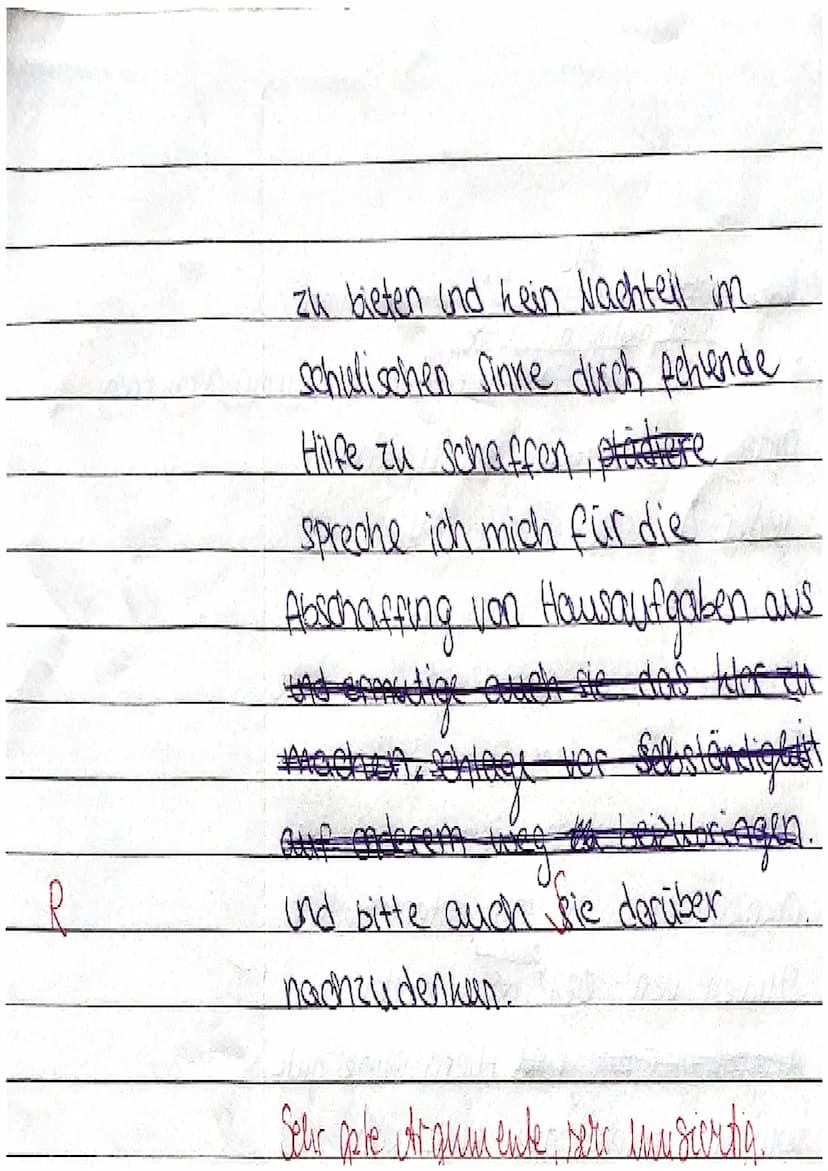 zu bieten und kein Nachteil im
schulischen Sinne durch fehende
Hilfe zu schaffen, plädiere
spreche ich mich für die
Abschaffung von Hausaufgaben aus
und ermutige auch sie das klar zu
machen. schlage vor Selbständigkeit
auf anderem weg beizubringen.
R und bitte auch Sie darüber
nachzudenken.
Sehr gute Argumente, sehr